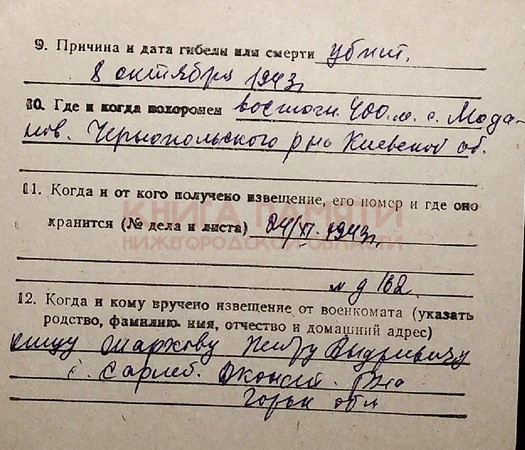 9. Причина и дата гибели или смерти убит.
8 октября 1943г
10. Где и когда похоронен восточн. 400 м. с. Мода-
нов. Чернопольского р-на Киевской об.
11. Когда и от кого получено извещение, его номер и где оно
КНИГА ПАМЯТИ
хранится (№ дела и листа) 24/XI-1943г
НИЖЕГОРОДСКОЙ ОБЛАСТИ
д 162
12. Когда и кому вручено извещение от военкомата (указать
родство, фамилию, имя, отчество и домашний адрес)
отцу Маркову Петру Андреевичу
с. р-на
Горьк обл